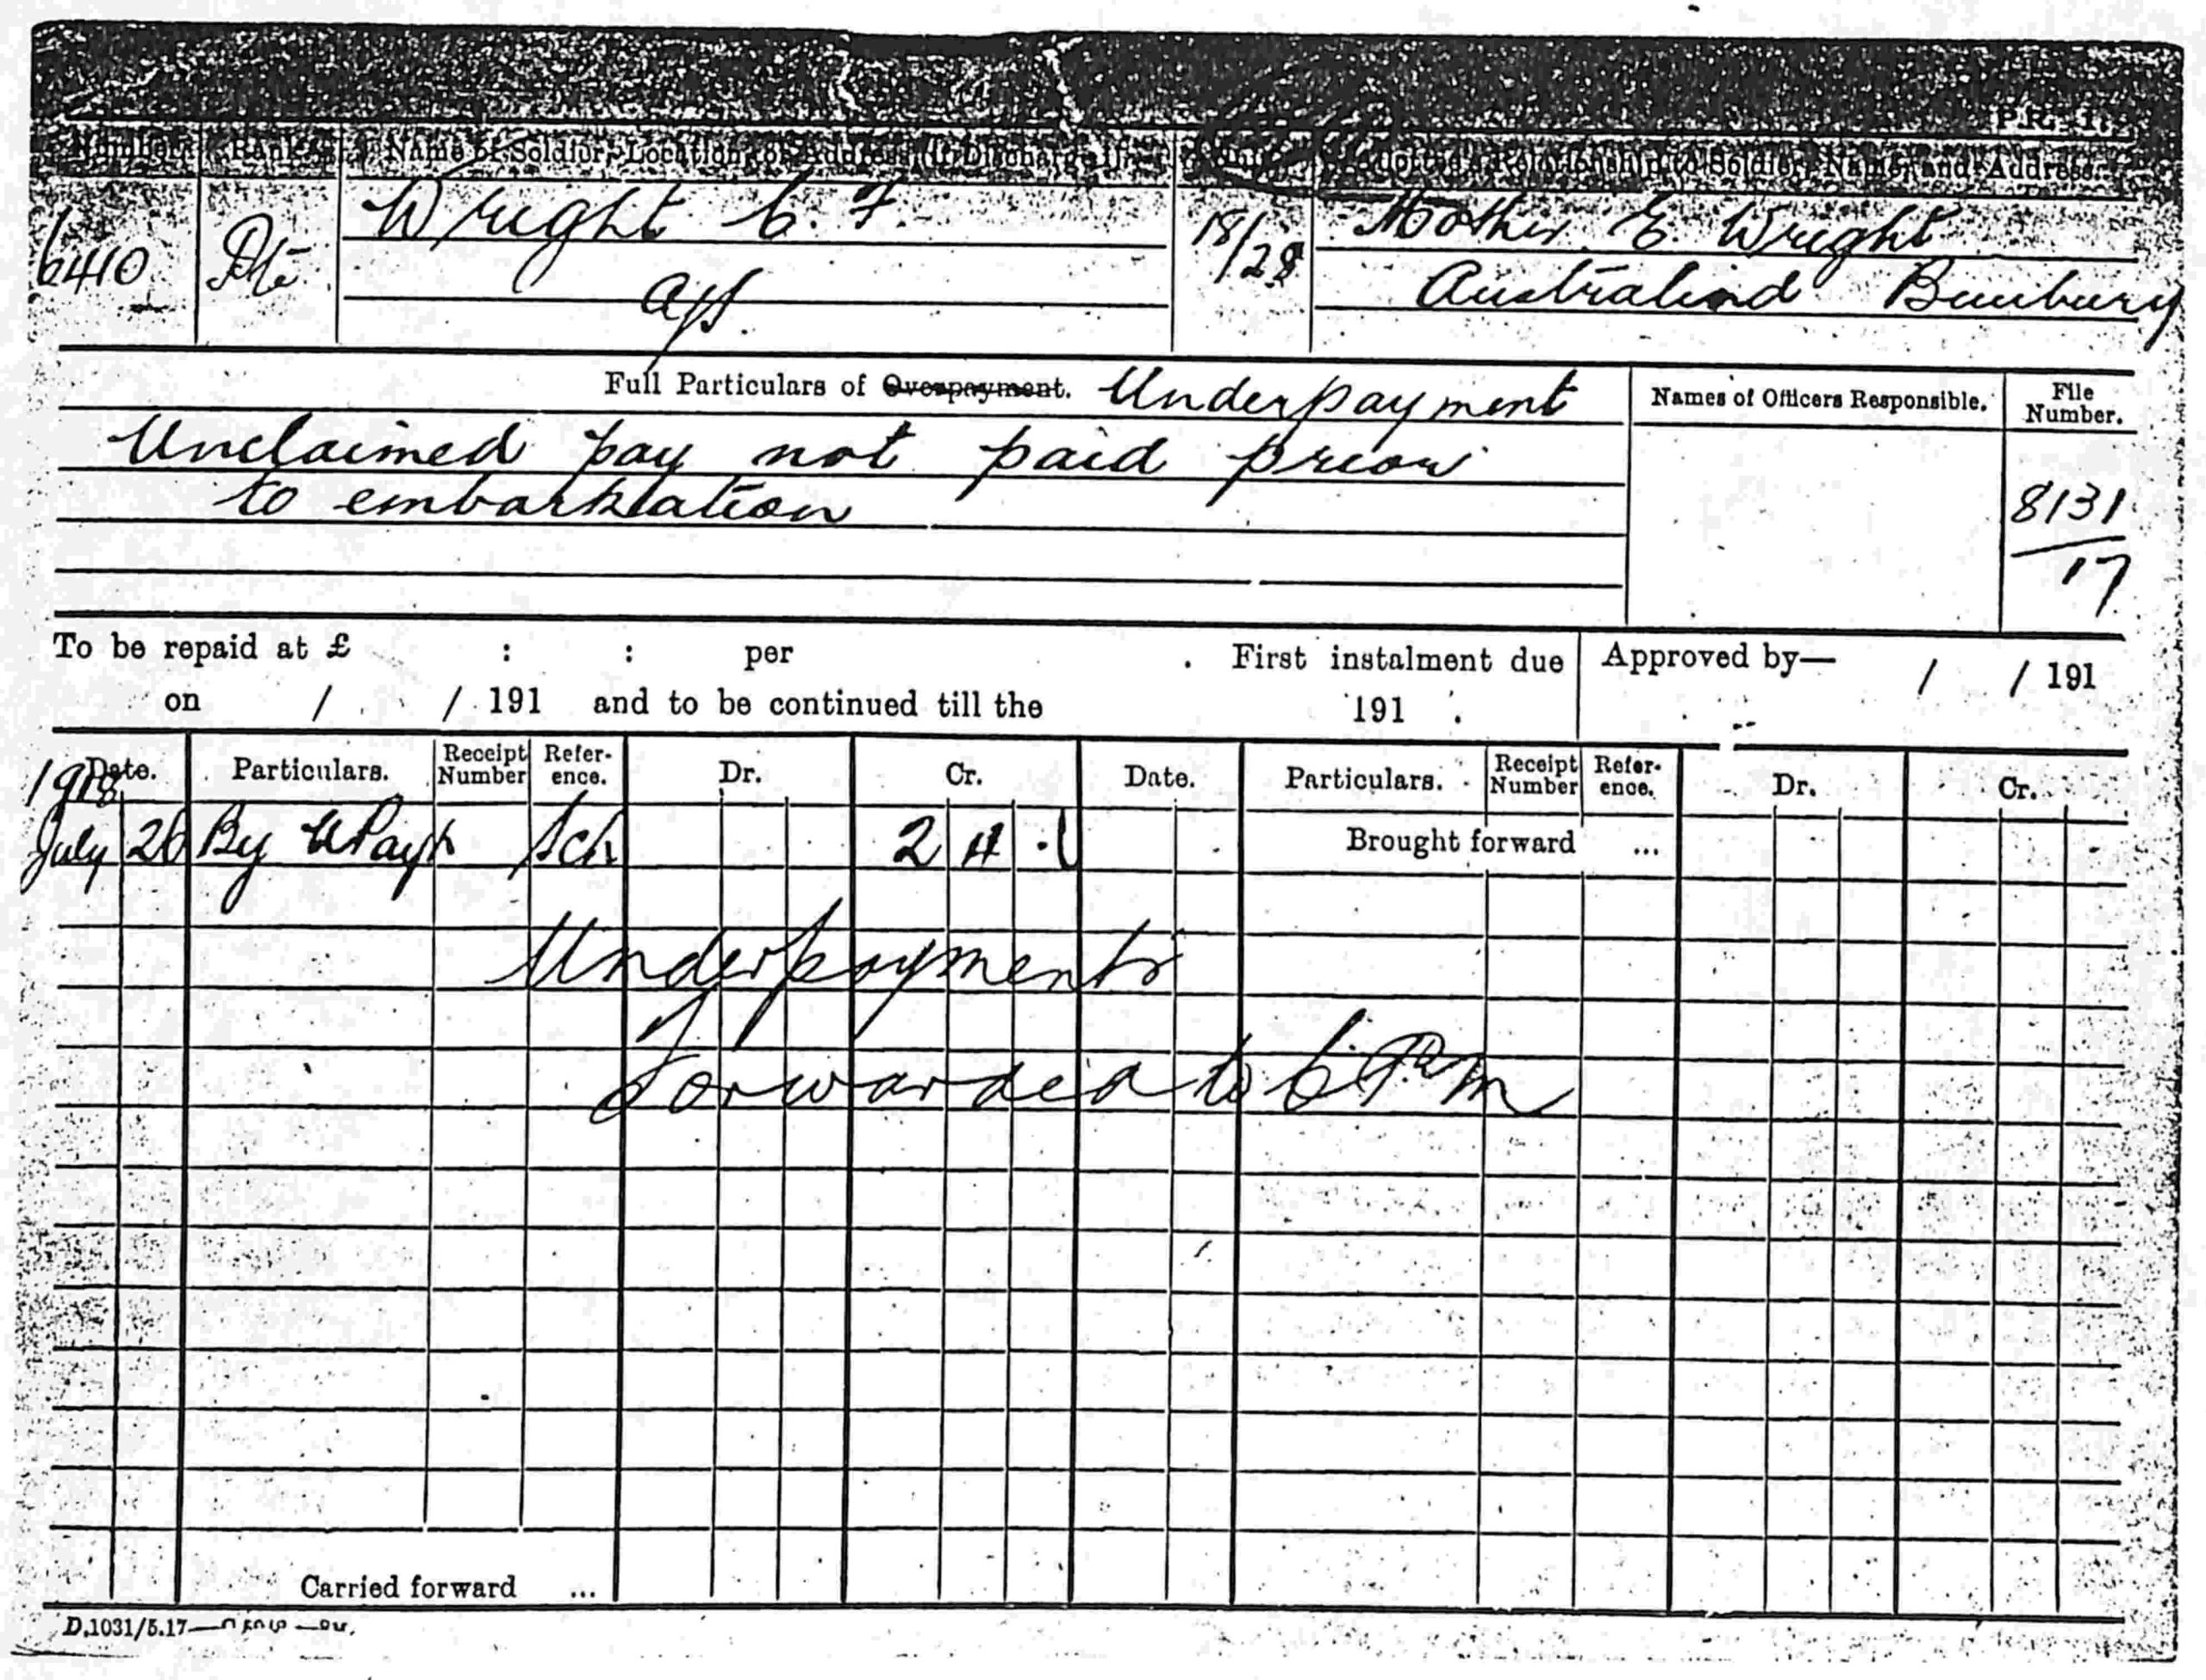 P.R. 1.
Number Rank Name of Soldier, Location, or Address (if Discharged). Unit Relationship to Soldier, Name, and Address.
6410 Pte Wright C. F. 18/28 Mother E. Wright
Australind Bunbury
Full Particulars of Overpayment. Underpayment Names of Officers Responsible. File Number.
Unclaimed pay not paid prior
to embarkation
8131/17
To be repaid at £ : : per . First instalment due Approved by— / / 191
on / / 191 and to be continued till the 191 .
Date. Particulars. Receipt Number Refer-ence. Dr. Cr. Date. Particulars. Receipt Number Refer-ence. Dr. Cr.
1918
July 26 By UPayt Sch 2 4 Brought forward ...
Underpayments
forwarded to C.P.M
Carried forward ...
D.1031/5.17—